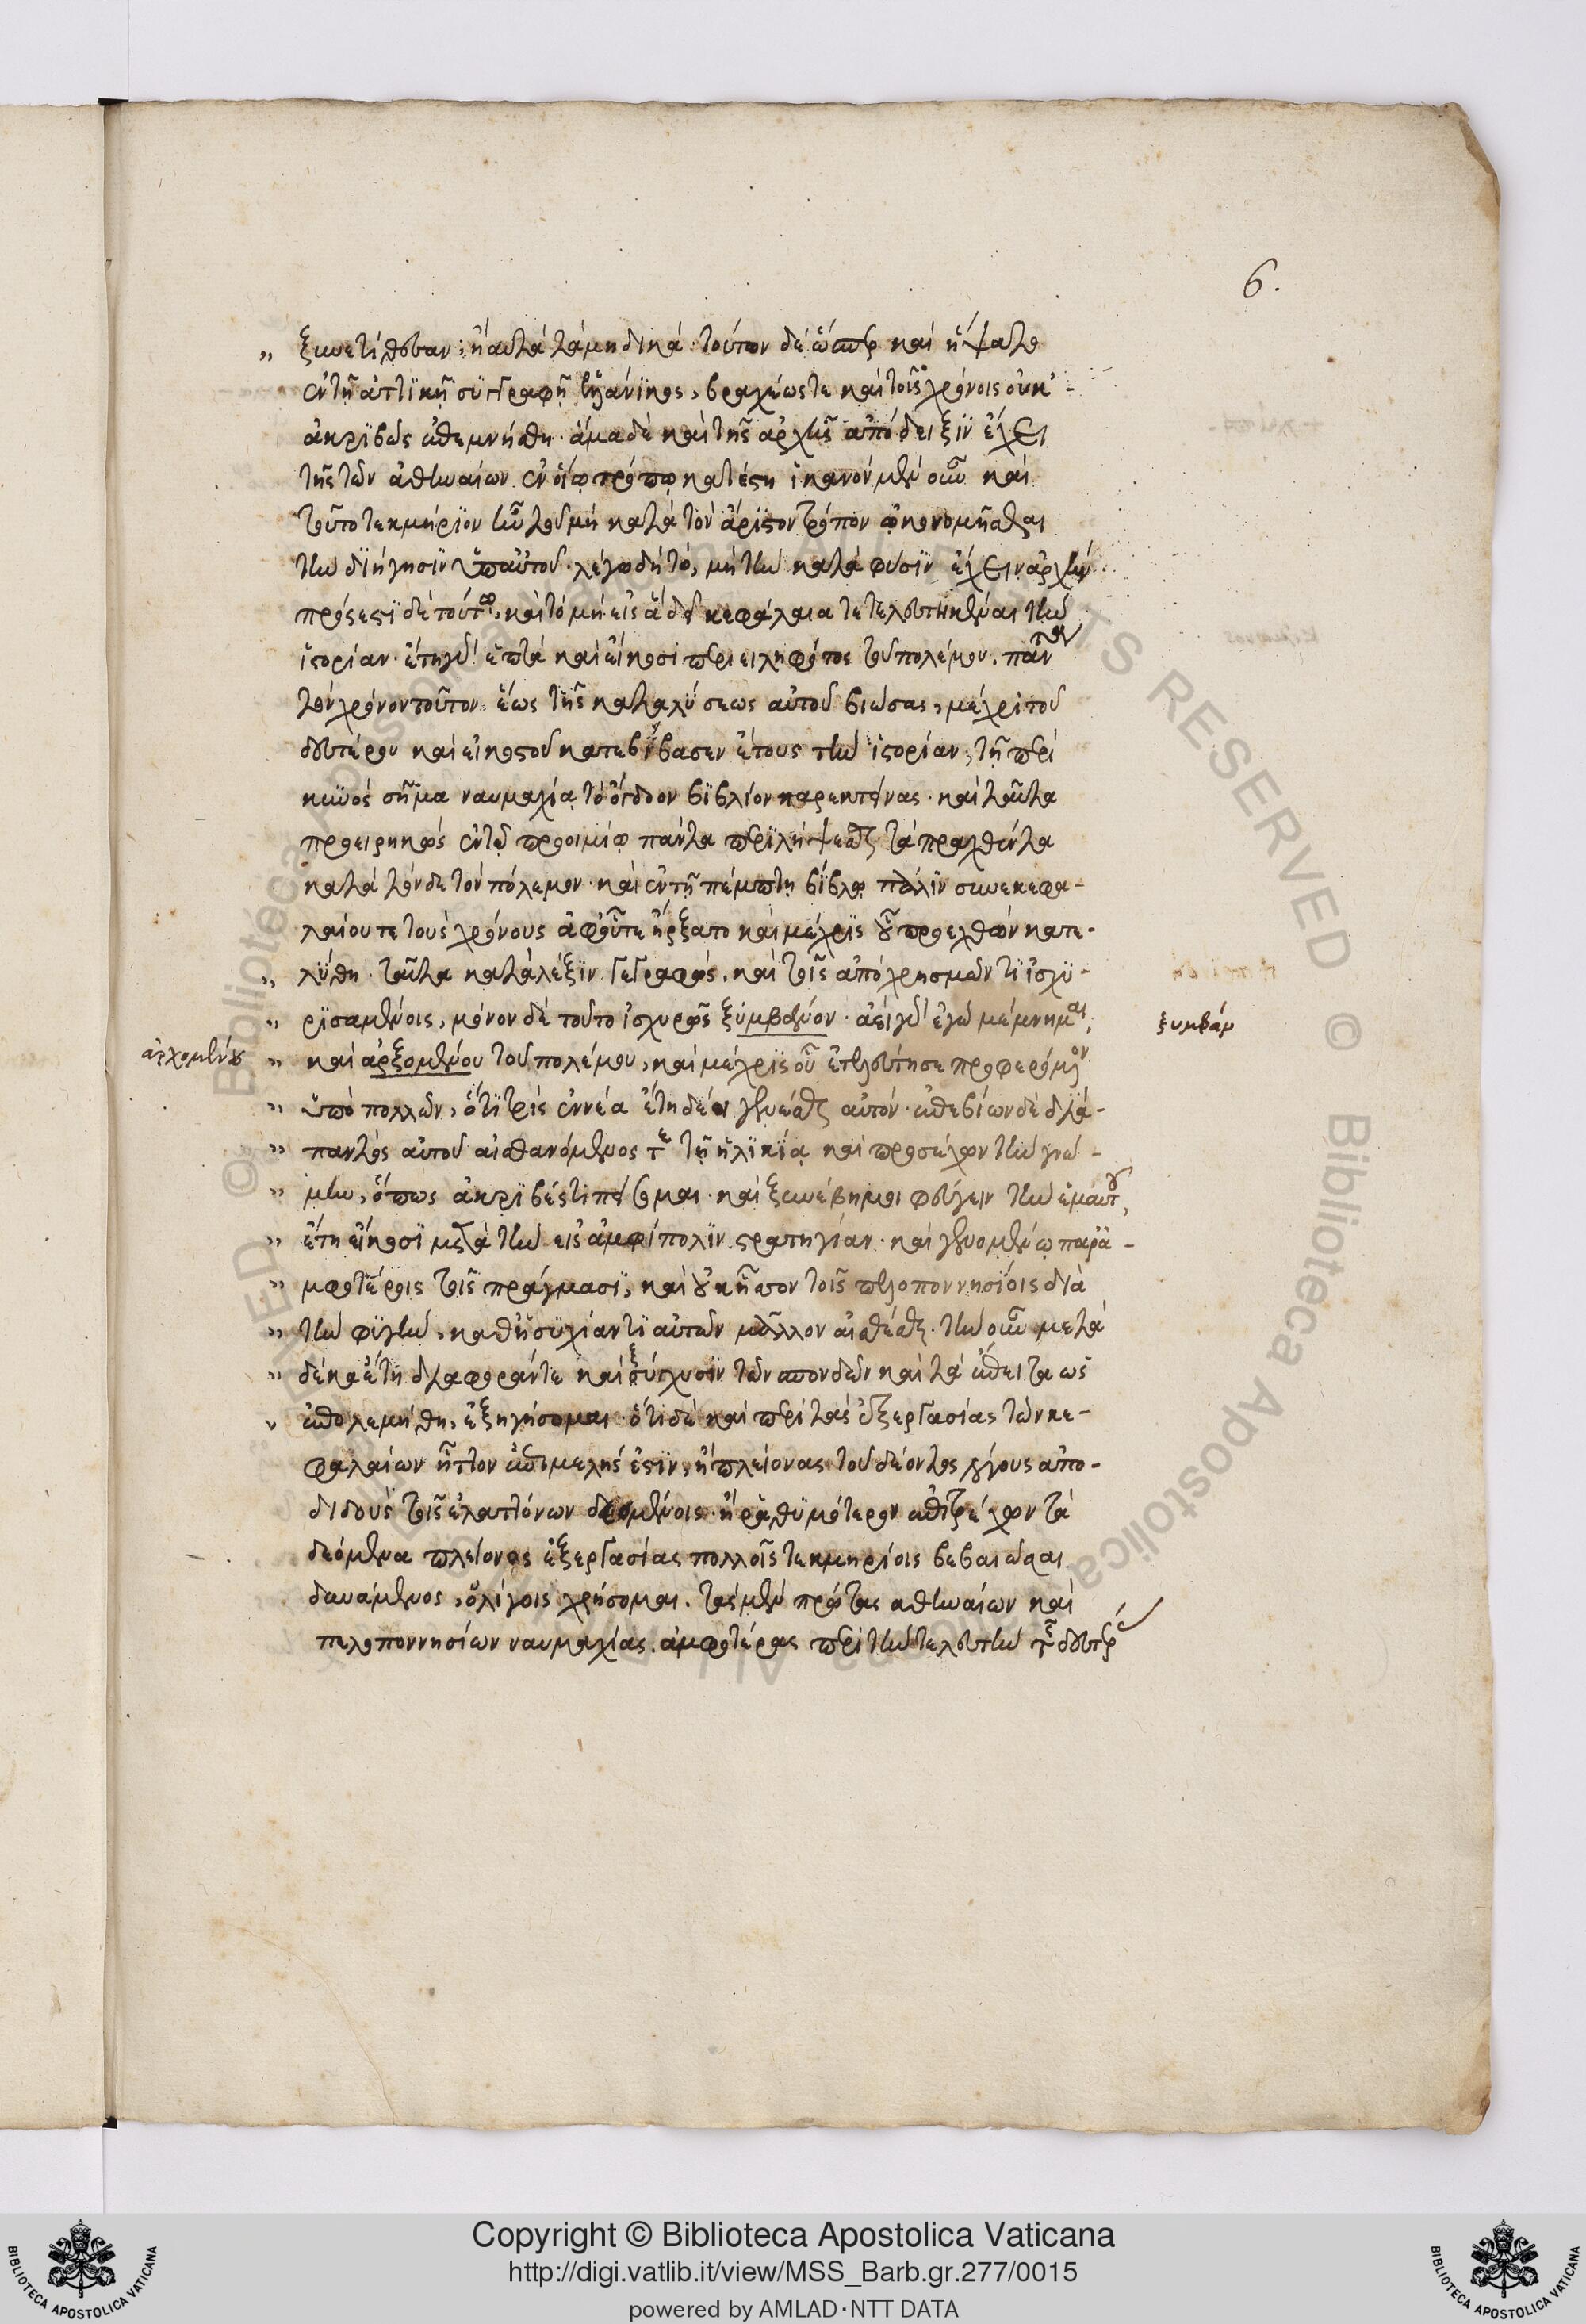 6.
ξυνετίθεσαν, ἢ αὐτὰ τὰ μηδικά· τούτων δὲ ὥσπερ καὶ ἥψατο
ἐν τῇ ἀττικῇ συγγραφῇ ἑλλάνικος, βραχέως τε καὶ τοῖς χρόνοις οὐκ
ἀκριβῶς ἐπεμνήσθη· ἅμα δὲ καὶ τῆς ἀρχῆς ἀπόδειξιν ἔχει
τῆς τῶν ἀθηναίων ἐν οἵῳ τρόπῳ κατέστη ἱκανὸν μὲν οὖν καὶ
τοῦτο τεκμήριον ἦν τοῦ μὴ κατὰ τὸν ἄριστον τρόπον ᾠκονομῆσθαι
τὴν διήγησιν ὑπ' αὐτοῦ· λέγω δὴ τὸ, μὴ τὴν κατὰ φύσιν ἔχειν ἀρχήν·
πρόσεστι δὲ τούτῳ, καὶ τὸ μὴ εἰς ἃ δεῖ κεφάλαια τετελευτηκέναι τὴν
ἱστορίαν· ἔτη γὰρ ἑπτὰ καὶ εἴκοσι περιειληφότος τοῦ πολέμου. πάντα
τὸν χρόνον τοῦτον ἕως τῆς καταλύσεως αὐτοῦ βιώσας, μέχρι τοῦ
δευτέρου καὶ εἰκοστοῦ κατεβίβασεν ἔτους τὴν ἱστορίαν, τῇ περὶ
κυνὸς σῆμα ναυμαχίᾳ τὸ ὄγδοον βιβλίον παρεκτείνας· καὶ ταῦτα
προειρηκὼς ἐν τῷ προοιμίῳ πάντα περιλήψεσθαι τὰ πραχθέντα
κατὰ τόνδε τὸν πόλεμον· καὶ ἐν τῇ πέμπτῃ βίβλῳ πάλιν συνεκεφα-
λαίου τε τοὺς χρόνους ἀφ' οὗ τε ἤρξατο καὶ μέχρις οὗ προελθὼν κατε-
λύθη· ταῦτα κατὰ λέξιν γεγραφώς. καὶ τοῖς ἀπὸ χρησμῶν τι ἰσχυ-
ρισαμένοις, μόνον δὲ τοῦτο ἰσχυρῶς ξυμβαῖνον· ἀεὶ γὰρ ἐγὼ μέμνημαι,
ξυμβάν
καὶ ἀρξομένου τοῦ πολέμου, καὶ μέχρις οὗ ἐτελεύτησε προφερόμενον
ἀρχομένου
ὑπὸ πολλῶν, ὅτι τρὶς ἐννέα ἔτη δέοι γενέσθαι αὐτόν· ἐπεβίων δὲ διὰ-
παντὸς αὐτοῦ αἰσθανόμενος τε τῇ ἡλικίᾳ καὶ προσέχων τὴν γνώ-
μην, ὅπως ἀκριβές τι πείσομαι· καὶ ξυνέβη μοι φεύγειν τὴν ἐμαυτοῦ,
ἔτη εἴκοσι μετὰ τὴν εἰς ἀμφίπολιν στρατηγίαν· καὶ γενομένῳ παρ' ἀ-
μφοτέροις τοῖς πράγμασι, καὶ οὐκ ἧττον τοῖς πελοποννησίοις διὰ
τὴν φυγήν, καθ' ἡσυχίαν τι αὐτῶν μᾶλλον αἰσθέσθαι. τὴν οὖν μετὰ
δέκα ἔτη διαφοράν τε καὶ ξύγχυσιν τῶν σπονδῶν καὶ τὰ ἔπειτα ὡς
ἐπολεμήθη, ἐξηγήσομαι· ὅτι δὲ καὶ περὶ τὰς ἐξεργασίας τῶν κε-
φαλαίων ἧττον ἐπιμελής ἐστιν, ἢ πλείονας τοῦ δέοντος λόγους ἀπο-
διδοὺς τοῖς ἐλαττόνων δεομένοις· ἢ ῥᾳθυμότερον ἐπιτρέχων τὰ
δεόμενα πλείονος ἐξεργασίας πολλοῖς τεκμηρίοις βεβαιῶσαι
δυνάμενος, ὀλίγοις χρήσομαι. τὰς μὲν πρώτας ἀθηναίων καὶ
πελοποννησίων ναυμαχίας. ἀμφοτέρας περὶ τὴν τελευτὴν τῆς δευτέρ